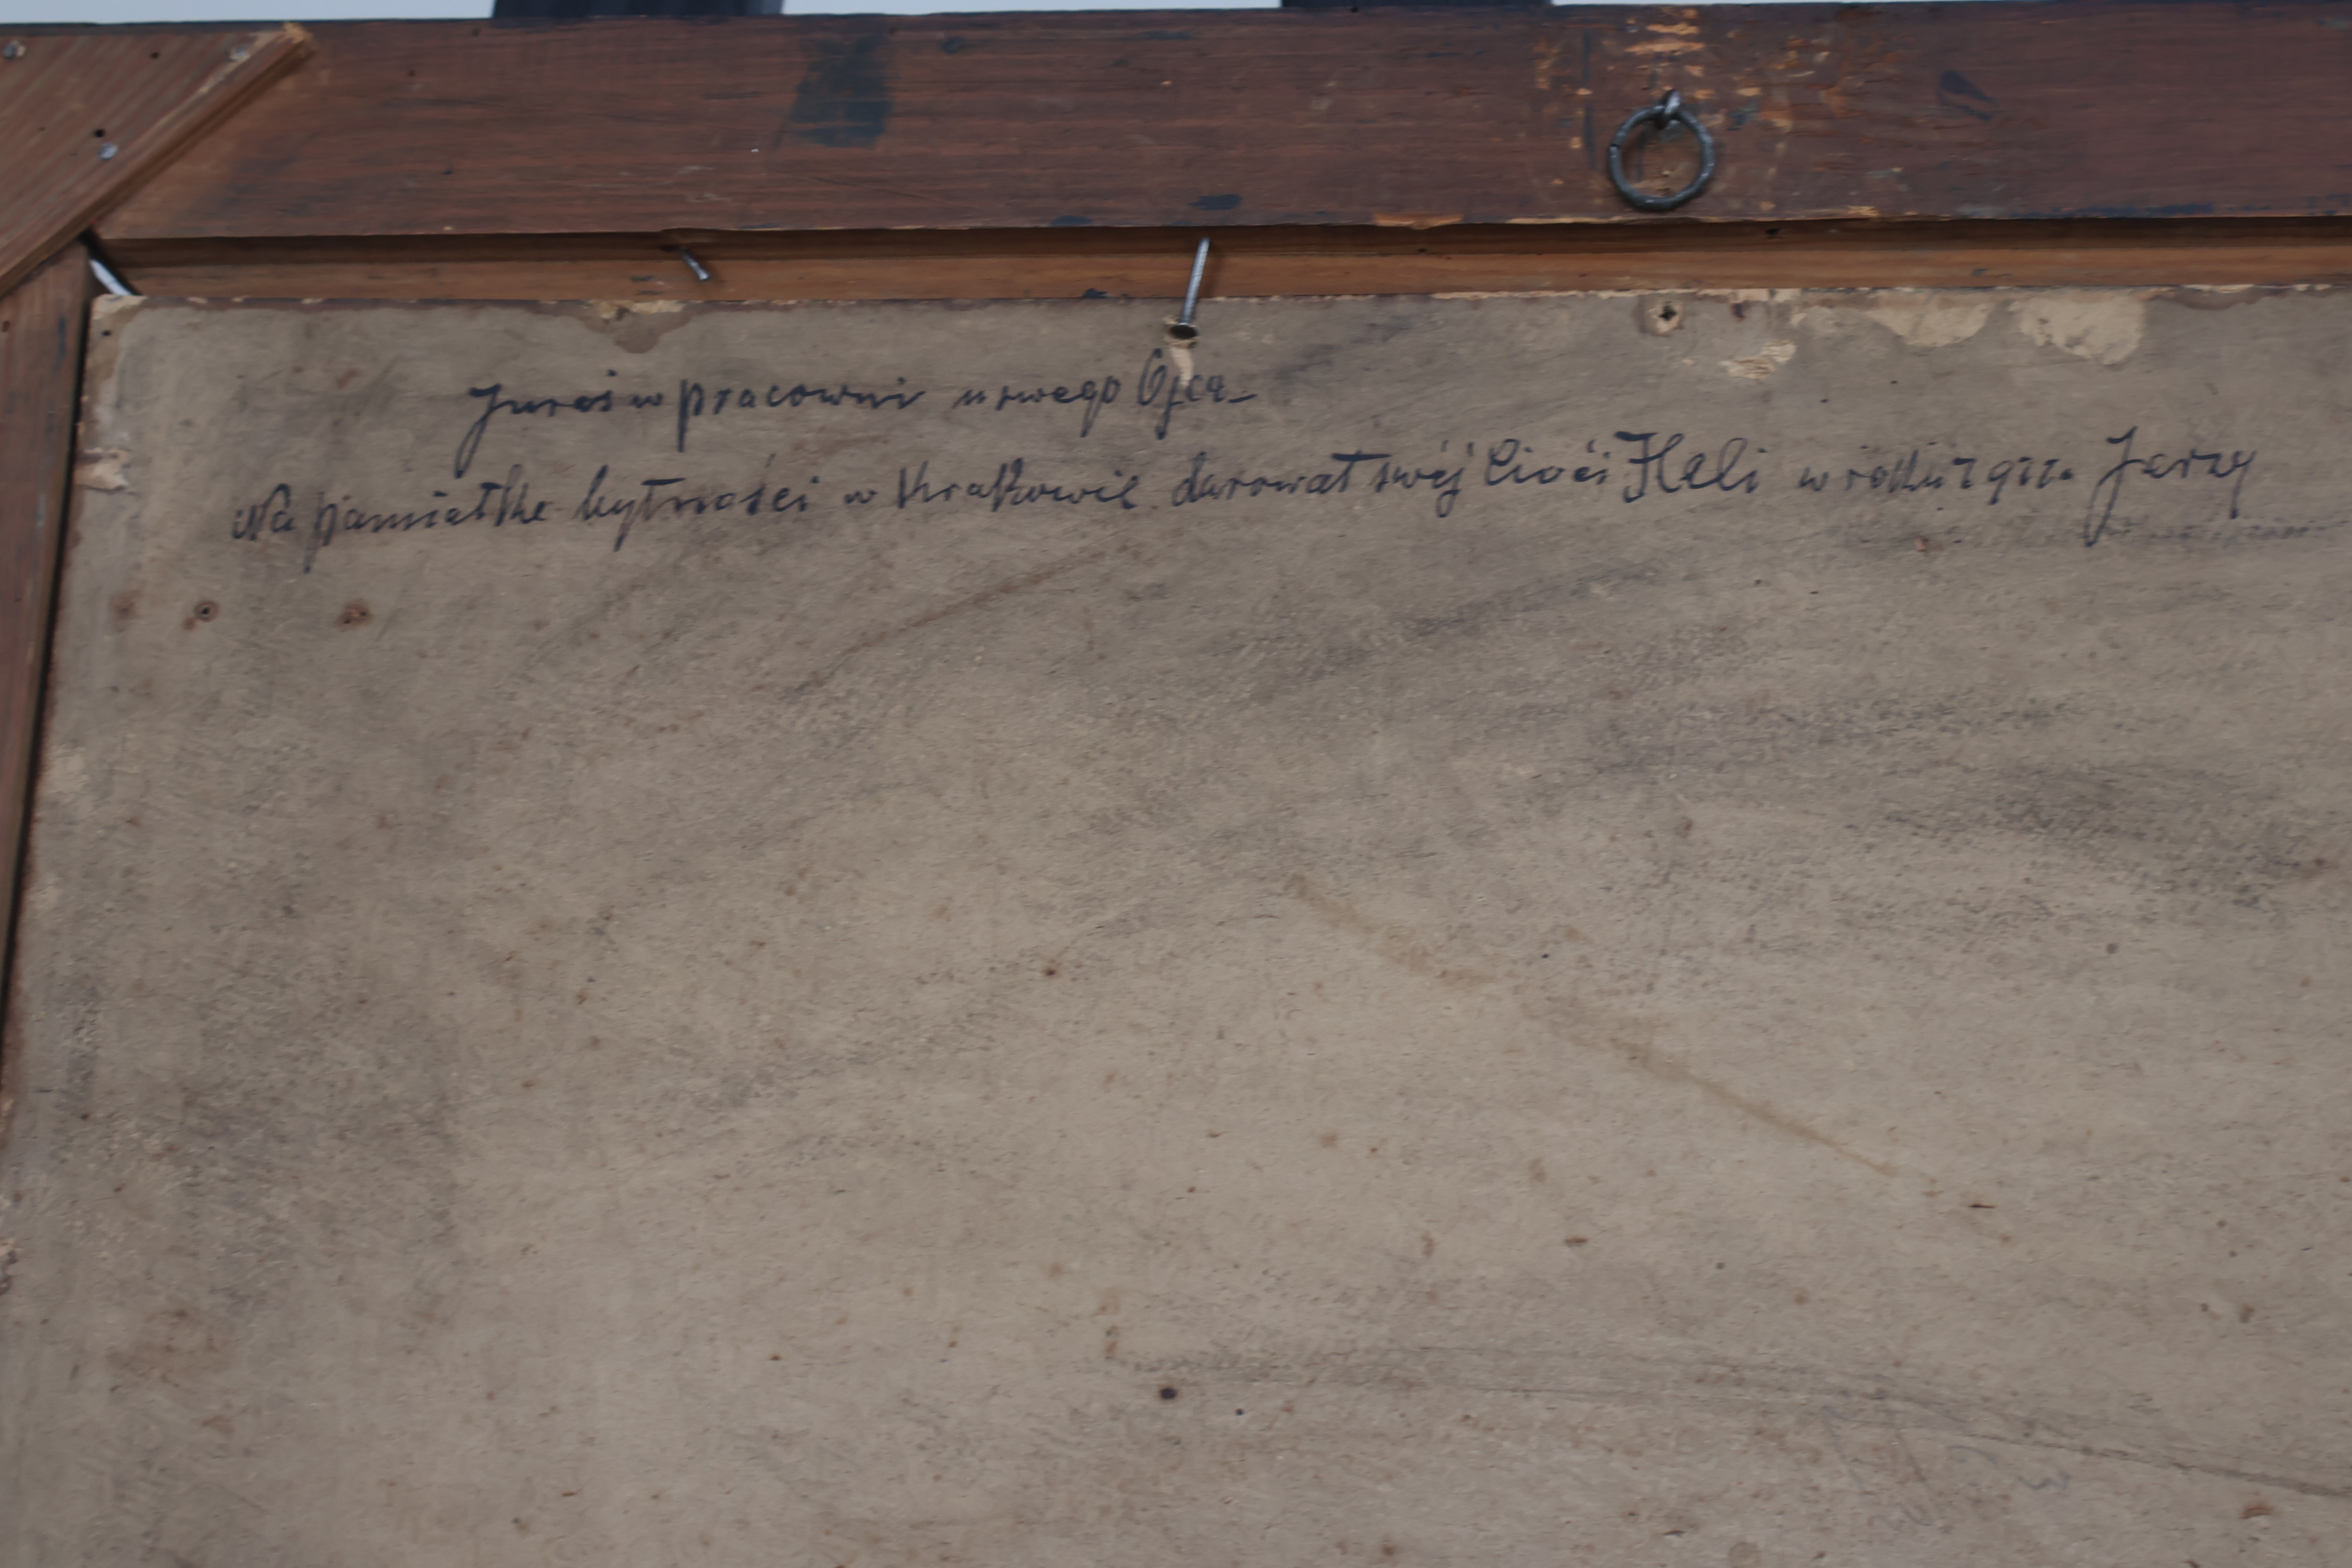 Juraś w pracowni u swego Ojca_
Na pamiatke bytności w Krakowie darował swéj Cioci Heli w roku Jerzy